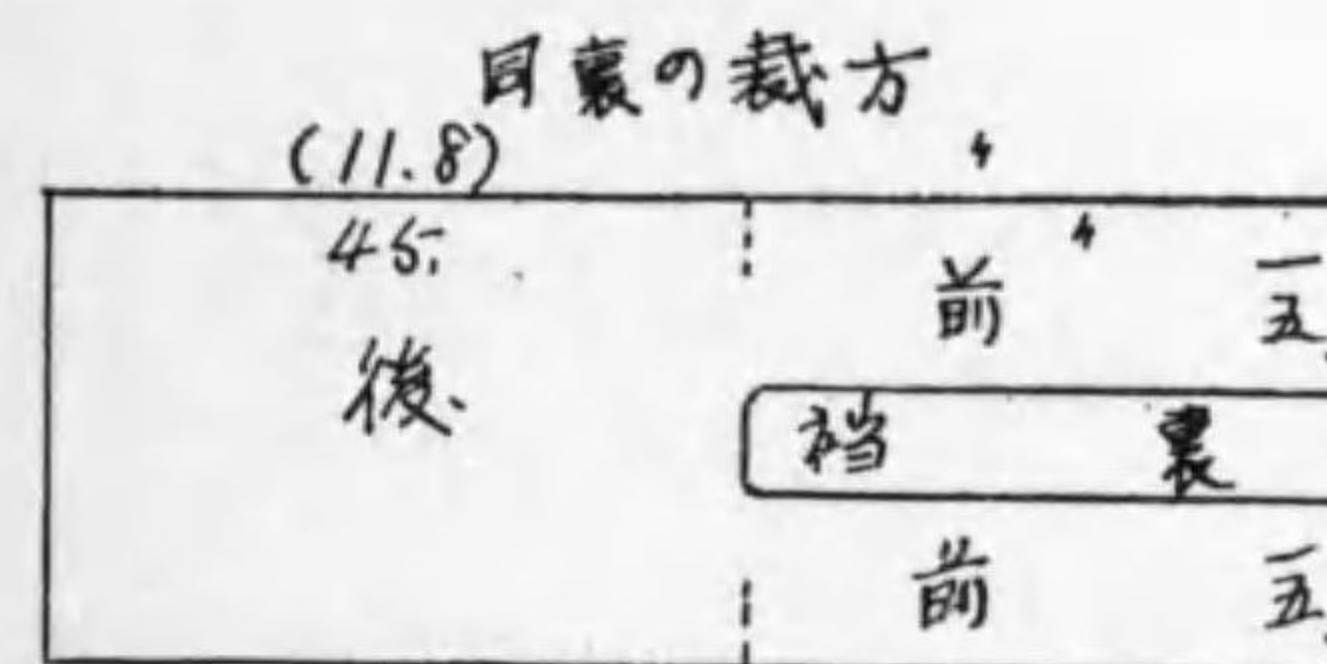 同裏の裁方
(11.8)
45.
後、
前 一五
襠 裏
前 一五